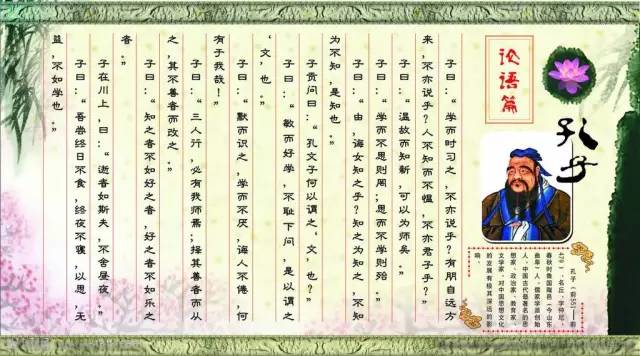 孔子
论语篇
孔子（前551——前
479），名丘，字仲尼，
春秋时鲁国陬邑（今山东
曲阜）人。儒家学派创始
人，中国古代最著名的思
想家、政治家、教育家、
文学家，对中国思想文化
的发展有极其深远的影
响。
子曰：“学而时习之，不亦说乎？有朋自远方
来，不亦说乎？人不知而不愠，不亦君子乎？”
子曰：“温故而知新，可以为师矣。”
子曰：“学而不思则罔；思而不学则殆。”
子曰：“由，诲女知之乎？知之为知之，不知
为不知，是知也。”
子贡问曰：“孔文子何以谓之‘文’也？”
子曰：“敏而好学，不耻下问，是以谓之
‘文’也。”
子曰：“默而识之，学而不厌，诲人不倦，何
有于我哉！”
子曰：“三人行，必有我师焉；择其善者而从
之，其不善者而改之。”
子曰：“知之者不如好之者，好之者不如乐之
者。”
子在川上，曰：“逝者如斯夫，不舍昼夜。”
子曰：“吾尝终日不食，终夜不寝，以思，无
益，不如学也。”